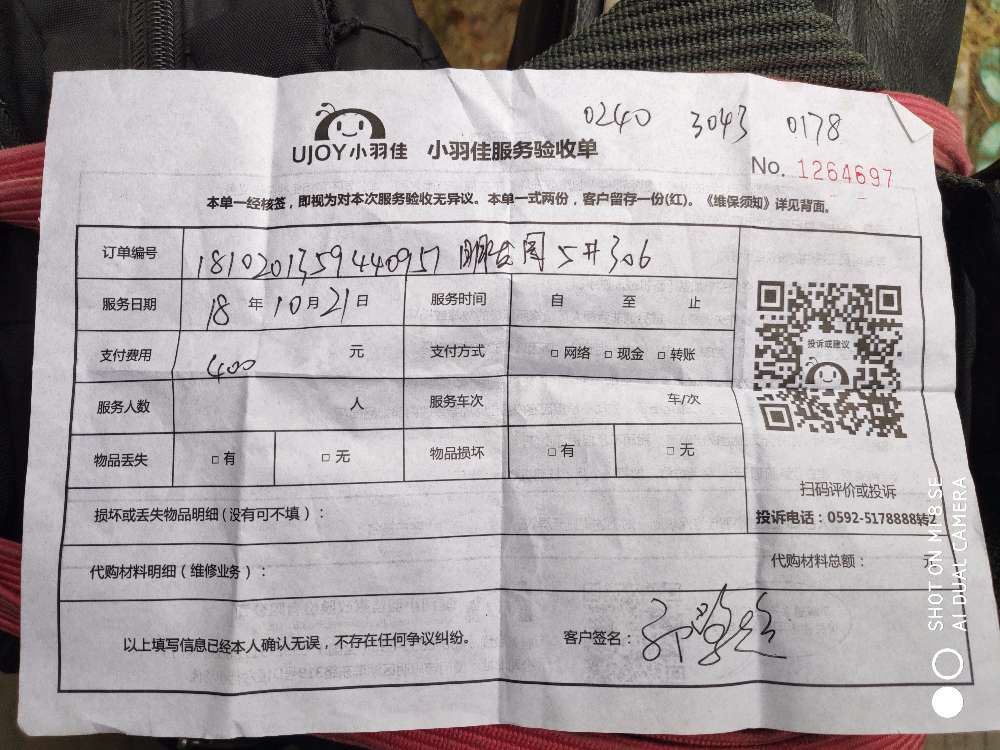 0240 3043 0178
UJOY小羽佳 小羽佳服务验收单
No. 1264697
本单一经核签，即视为对本次服务验收无异议。本单一式两份，客户留存一份(红)。《维保须知》详见背面。
订单编号 1810201359440957 5#306
服务日期 18 年 10 月 21 日 服务时间 自 至 止
支付费用 400 元 支付方式 □ 网络 □ 现金 □ 转账
服务人数 人 服务车次 车/次
物品丢失 □ 有 □ 无 物品损坏 □ 有 □ 无
投诉或建议
扫码评价或投诉
投诉电话：0592-5178888转2
损坏或丢失物品明细（没有可不填）：
代购材料明细（维修业务）： 代购材料总额： 元
以上填写信息已经本人确认无误，不存在任何争议纠纷。 客户签名：
SHOT ON MI 8 SE
AI DUAL CAMERA